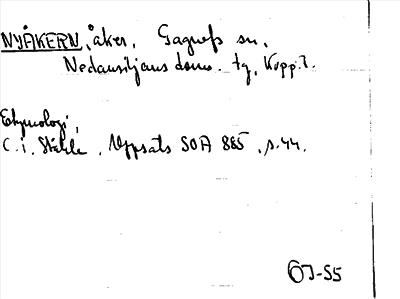 NYÅKERN, åker, Gagnefs sn,
Nedansiljans doms. tg, Kopp. l.
Etymologi,
C. I. Ståhle, Uppsats SOA 885, s. 44.
OJ-55